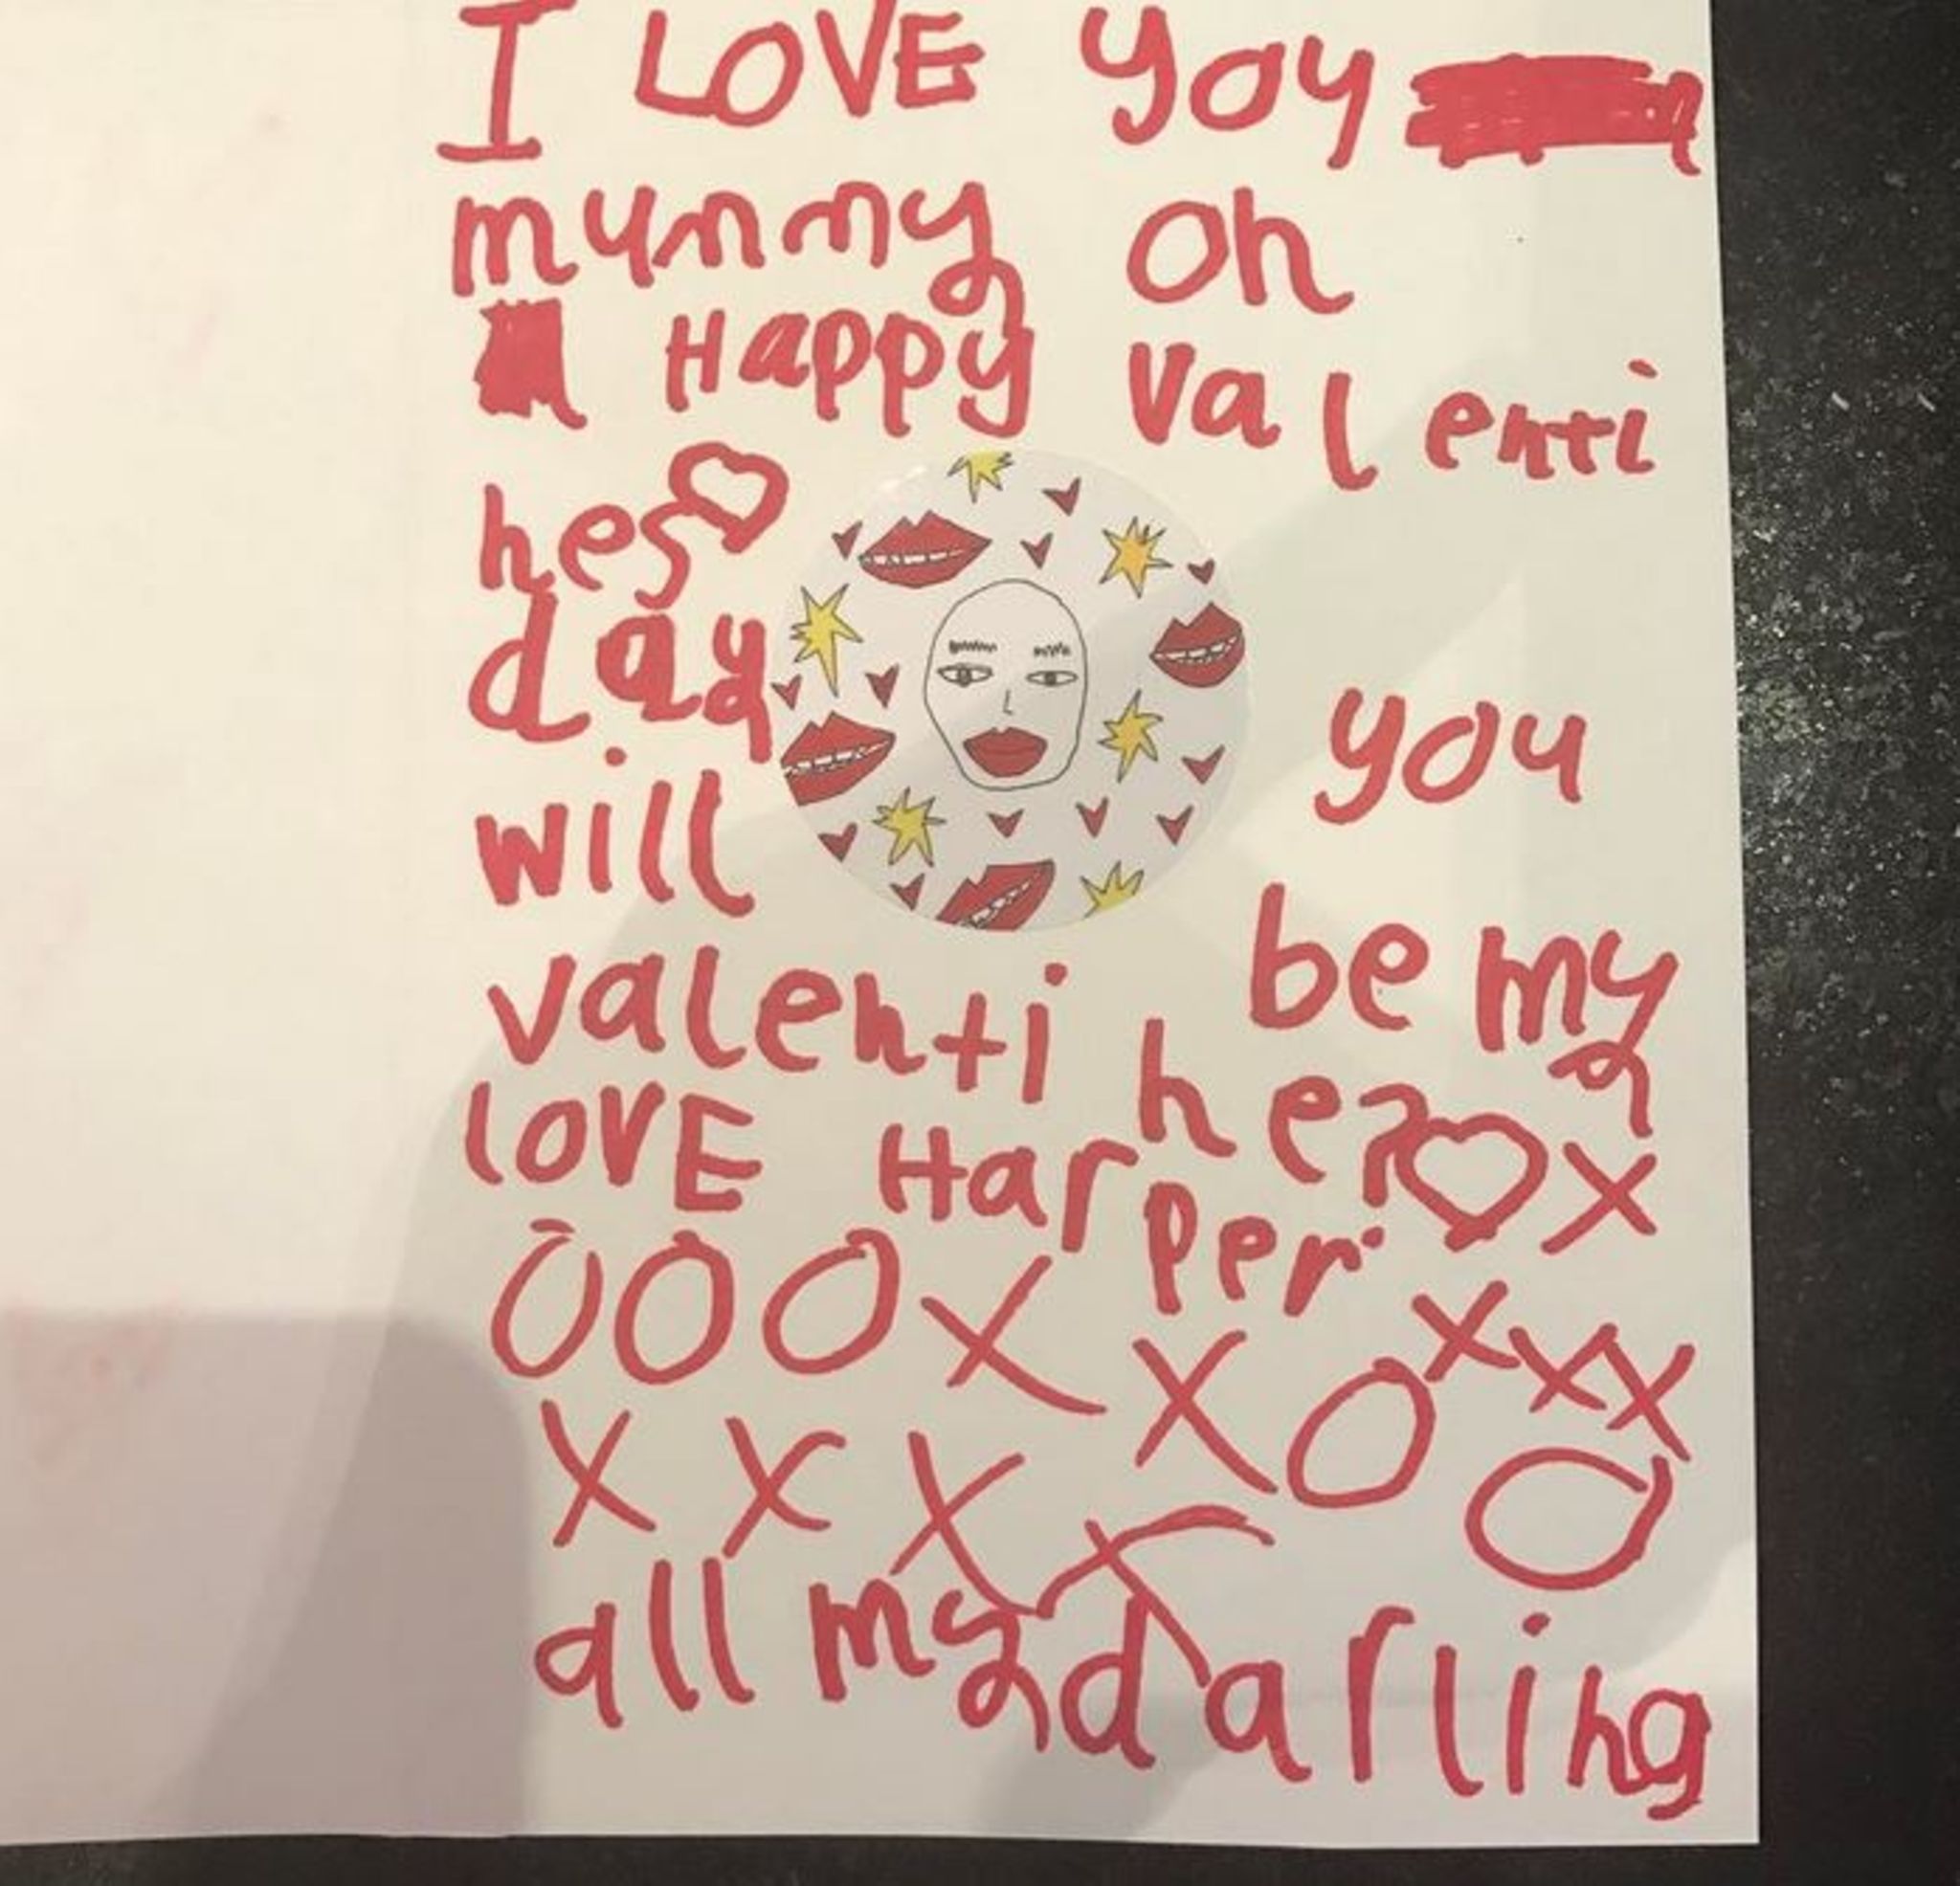 I LOVE you
mummy oh
Happy valenti
nes
day
will you
be my
valenti ne?
LOVE Harper x
OOOX
XO xxx
X X X X O
all my darling